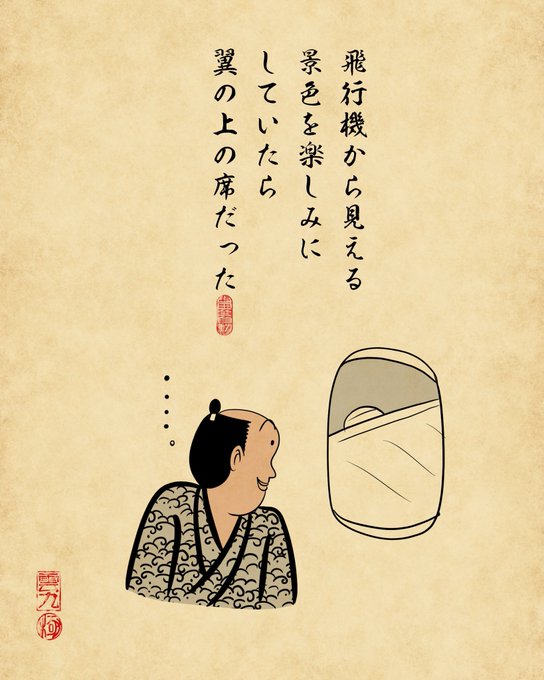 飛行機から見える
景色を楽しみに
していたら
翼の上の席だった